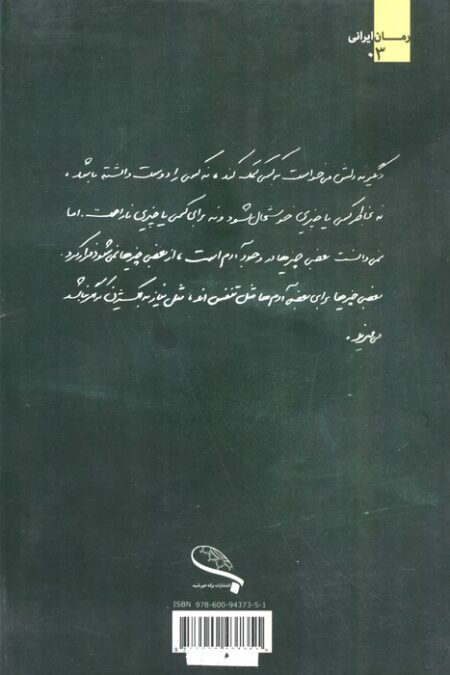 رمان ایرانی
۰۳
دیگر نه دلش می‌خواست به کسی کمک کند، نه کسی را دوست داشته باشد،
نه بخاطر کسی یا چیزی خوشحال بشود و نه برای کسی یا چیزی ناراحت. اما
نمی‌دانست بعضی چیزها در وجود آدم است، از بعضی چیزها نمی‌شود فرار کرد.
بعضی چیزها برای بعضی آدم‌ها مثل تنفس‌اند، مثل نیاز به اکسیژن که اگر نباشد
می‌میرند.
انتشارات برکه خورشید
ISBN 978-600-94373-5-1